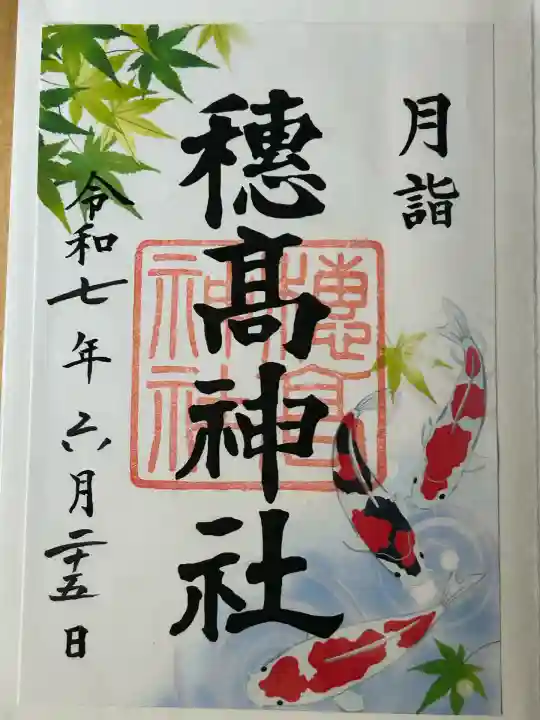 月詣
穗髙神社
穗髙神社
令和七年六月二十五日